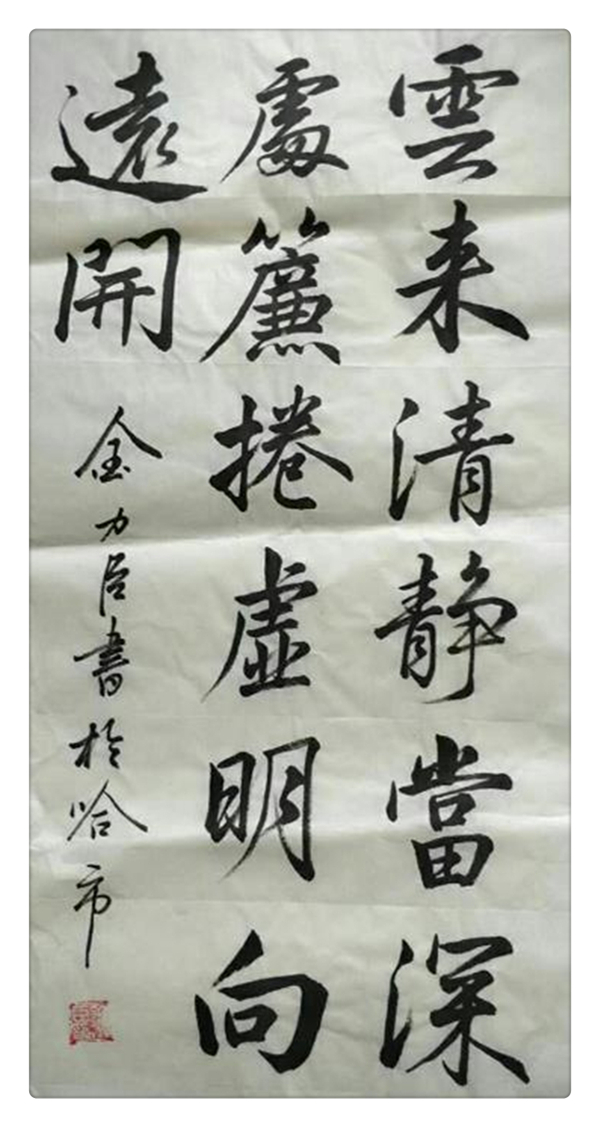 雲来清静當深
處簾捲虛明向
遠開
金力臣書於哈市